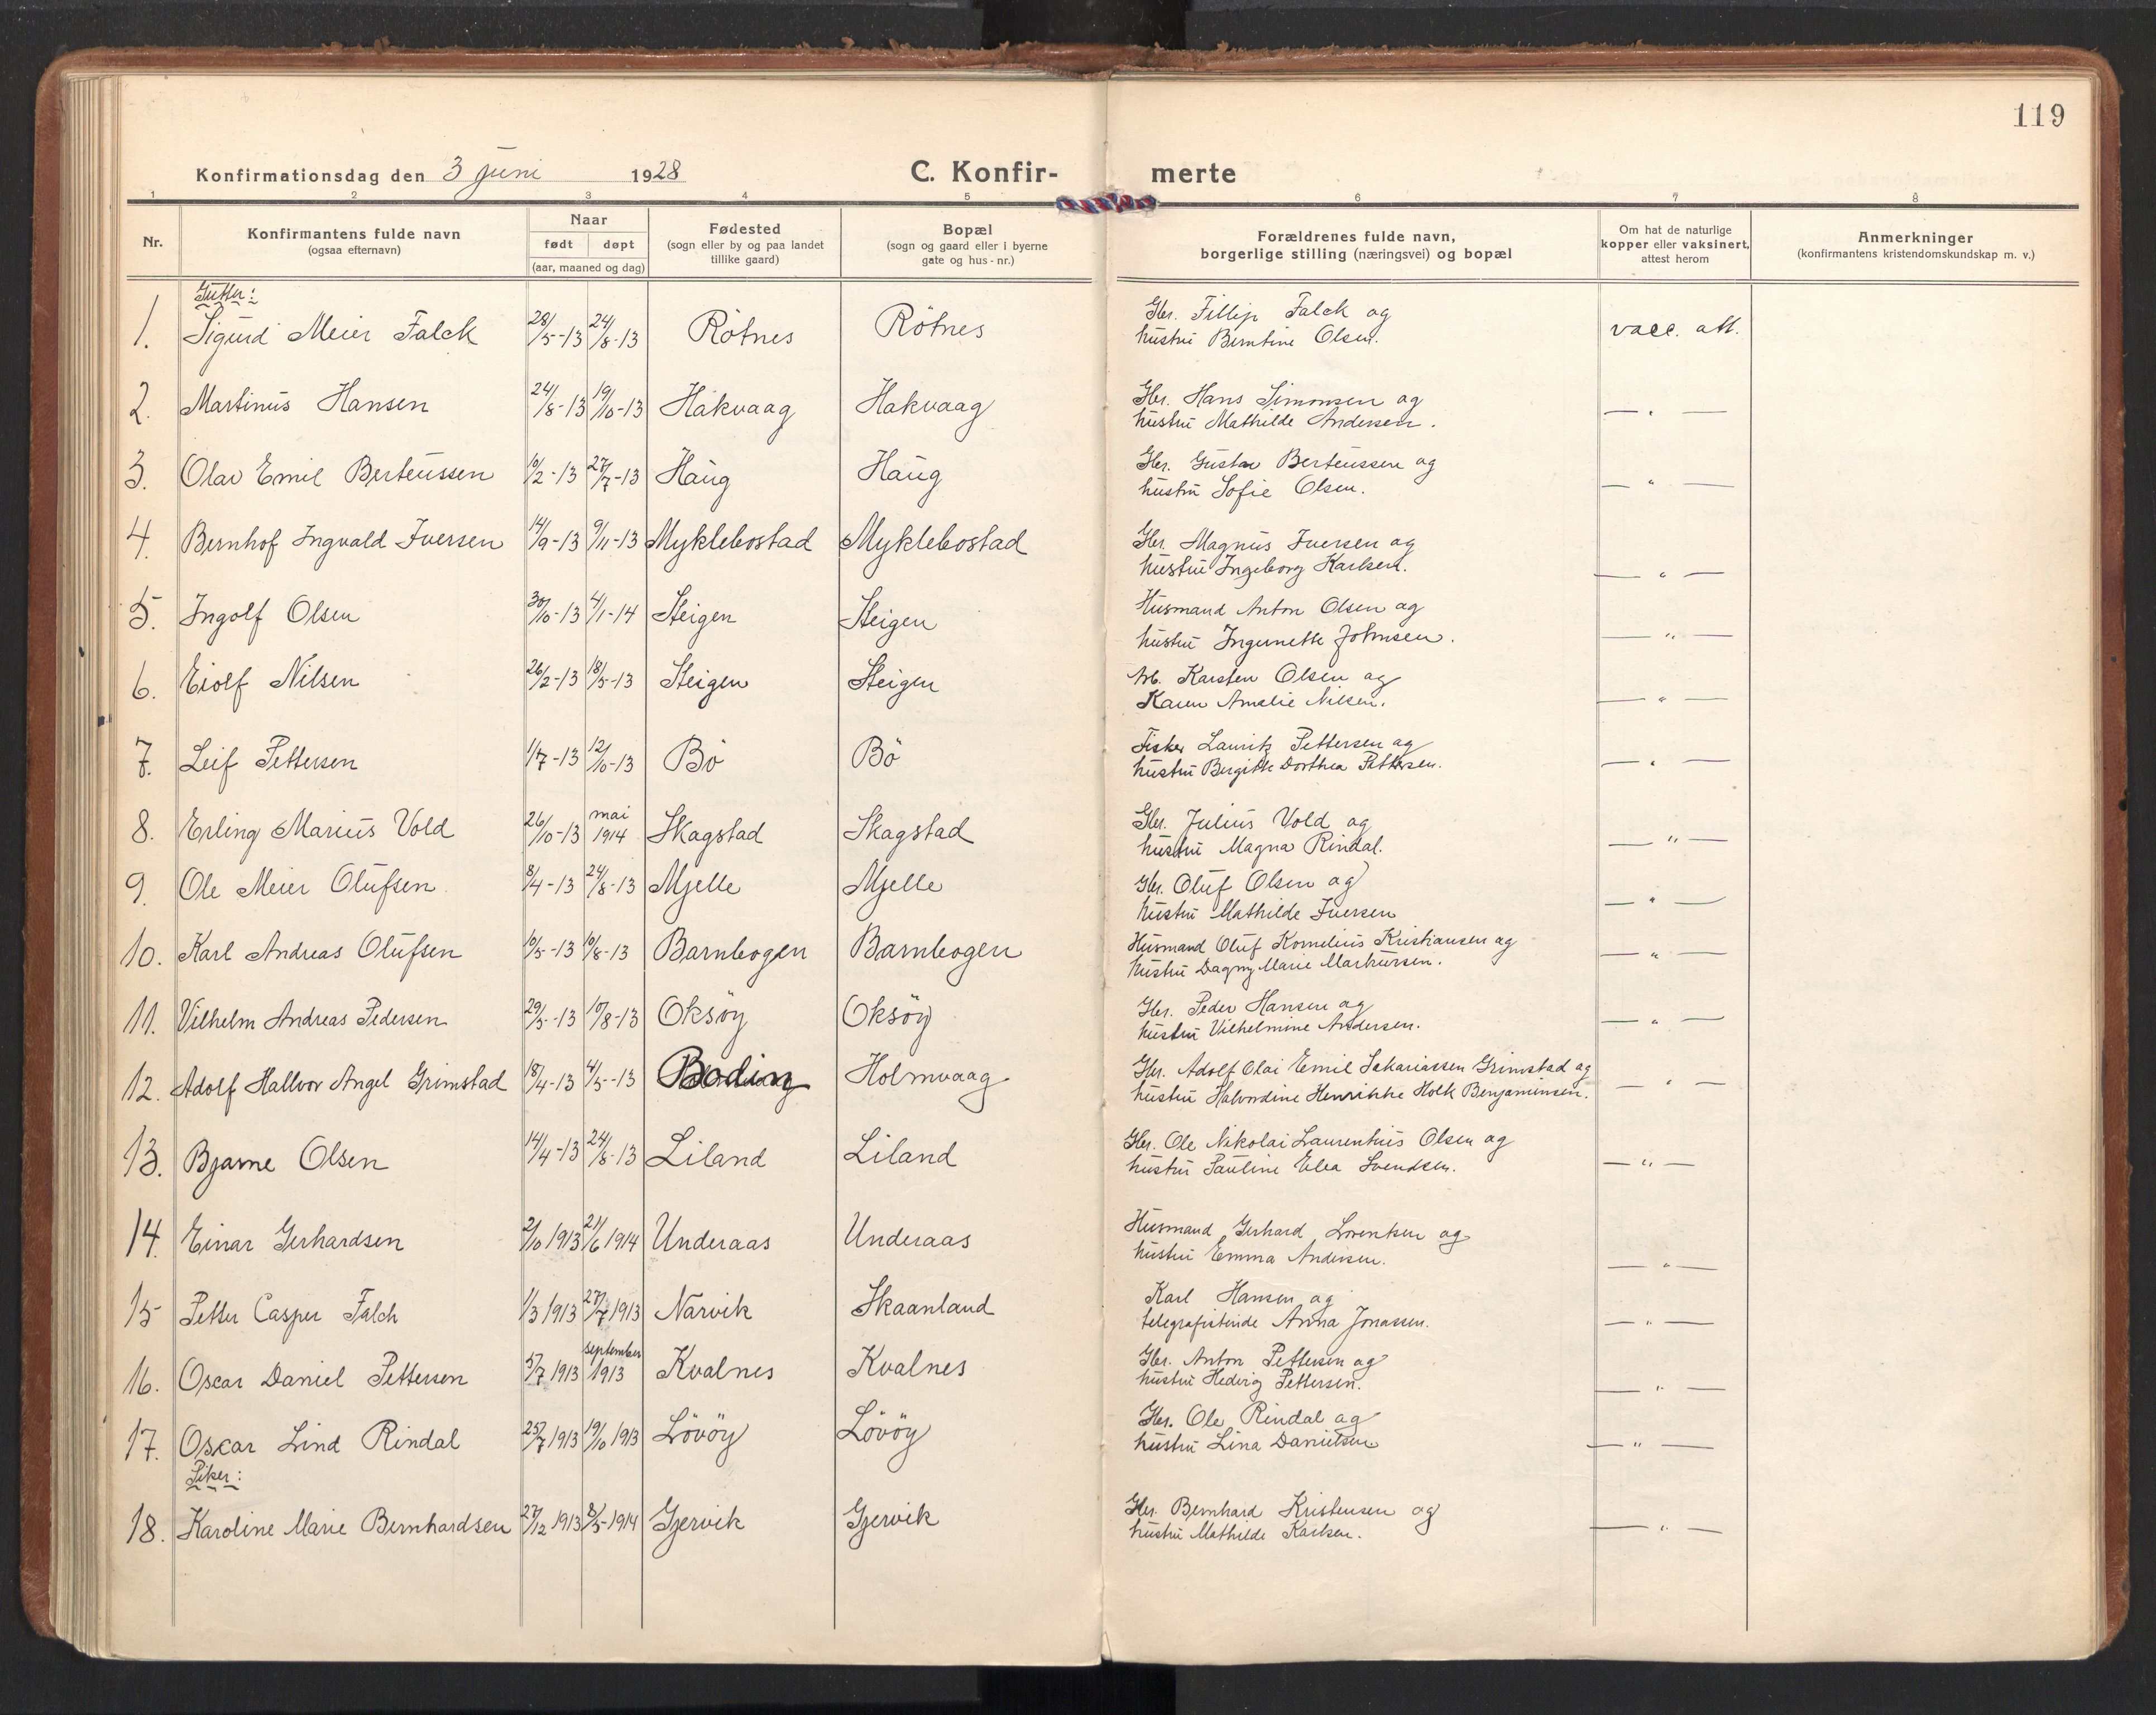 119
Konfirmationsdag den 3 juni 1928
C. Konfir-
merte
1 2 3 4 5 6 7 8
Nr.
Konfirmantens fulde navn
(ogsaa efternavn)
Naar
født døpt
(aar, maaned og dag)
Fødested
(sogn eller by og paa landet
tillike gaard)
Bopæl
(sogn og gaard eller i byerne
gate og hus-nr.)
Forældrenes fulde navn,
borgerlige stilling (næringsvei) og bopæl
Om hat de naturlige
kopper eller vaksinert,
attest herom
Anmerkninger
(konfirmantens kristendomskundskap m. v.)
Gutter:
1. Sigurd Meier Falck 28/5-13 24/8-13 Rötnes Rötnes Gbr. Fillip Falck og vacc. att.
hustru Berntine Olsen.
2. Martinus Hansen 24/8-13 19/10-13 Hakvaag Hakvaag Gbr. Hans Simonsen og
hustru Mathilde Andersen. — " —
3. Olav Emil Berteussen 10/2-13 27/7-13 Haug Haug Gbr. Gustav Berteussen og
hustru Sofie Olsen. — " —
4. Bernhof Ingvald Iversen 14/9-13 9/11-13 Myklebostad Myklebostad Gbr. Magnus Iversen og
hustru Ingeborg Karlsen. — " —
5. Ingolf Olsen 30/10-13 4/1-14 Steigen Steigen Husmand Anton Olsen og
hustru Ingernette Johnsen. — " —
6. Eiolf Nilsen 26/2-13 18/5-13 Steigen Steigen Arb. Karsten Olsen og
Karen Amalie Nilsen. — " —
7. Leif Pettersen 1/7-13 12/10-13 Bö Bö Fisker Lauritz Pettersen og
hustru Bergitte Dorthea Pettersen. — " —
8. Erling Marius Vold 26/10-13 mai 1914 Skagstad Skagstad Gbr. Julius Vold og
hustru Magna Rindal. — " —
9. Ole Meier Olufsen 8/4-13 24/8-13 Mjelle Mjelle Gbr. Oluf Olsen og
hustru Mathilde Iversen — " —
10. Karl Andreas Olufsen 10/5-13 10/8-13 Barnbogen Barnbogen Husmand Oluf Kornelius Kristiansen og
hustru Dagny Marie Markussen. — " —
11. Vilhelm Andreas Pedersen 29/5-13 10/8-13 Oksöy Oksöy Gbr. Peder Hansen og
hustru Vilhelmine Andersen. — " —
12. Adolf Hallvor Angel Grimstad 18/4-13 4/5-13 Bodin Holmvaag Gbr. Adolf Olai Emil Sakariassen Grimstad og
hustru Halvordine Henrikke Holk Benjaminsen. — " —
13. Bjarne Olsen 14/4-13 24/8-13 Liland Liland Gbr. Ole Nikolai Laurentius Olsen og
hustru Pauline Elea Svendsen. — " —
14. Einar Gerhardsen 2/10 1913 21/6 1914 Underaas Underaas Husmand Gerhard Lorentsen og
hustru Emma Andersen. — " —
15 Petter Casper Falch 1/3 1913 27/7 1913 Narvik Skaanland Karl Hansen og
telegrafistinde Anna Jonassen. — " —
16. Oscar Daniel Pettersen 5/7 1913 september 1913 Kvalnes Kvalnes Gbr. Anton Pettersen og
hustru Hedvig Pettersen. — " —
17. Oskar Lind Rindal 25/7 1913 19/10 1913 Lövöy Lövöy Gbr. Ole Rindal og
hustru Lina Danielsen — " —
Piker:
18. Karoline Marie Bernhardsen 27/12 1913 8/5-1914 Gjervik Gjervik Gbr. Bernhard Kristensen og
hustru Mathilde Karlsen. — " —